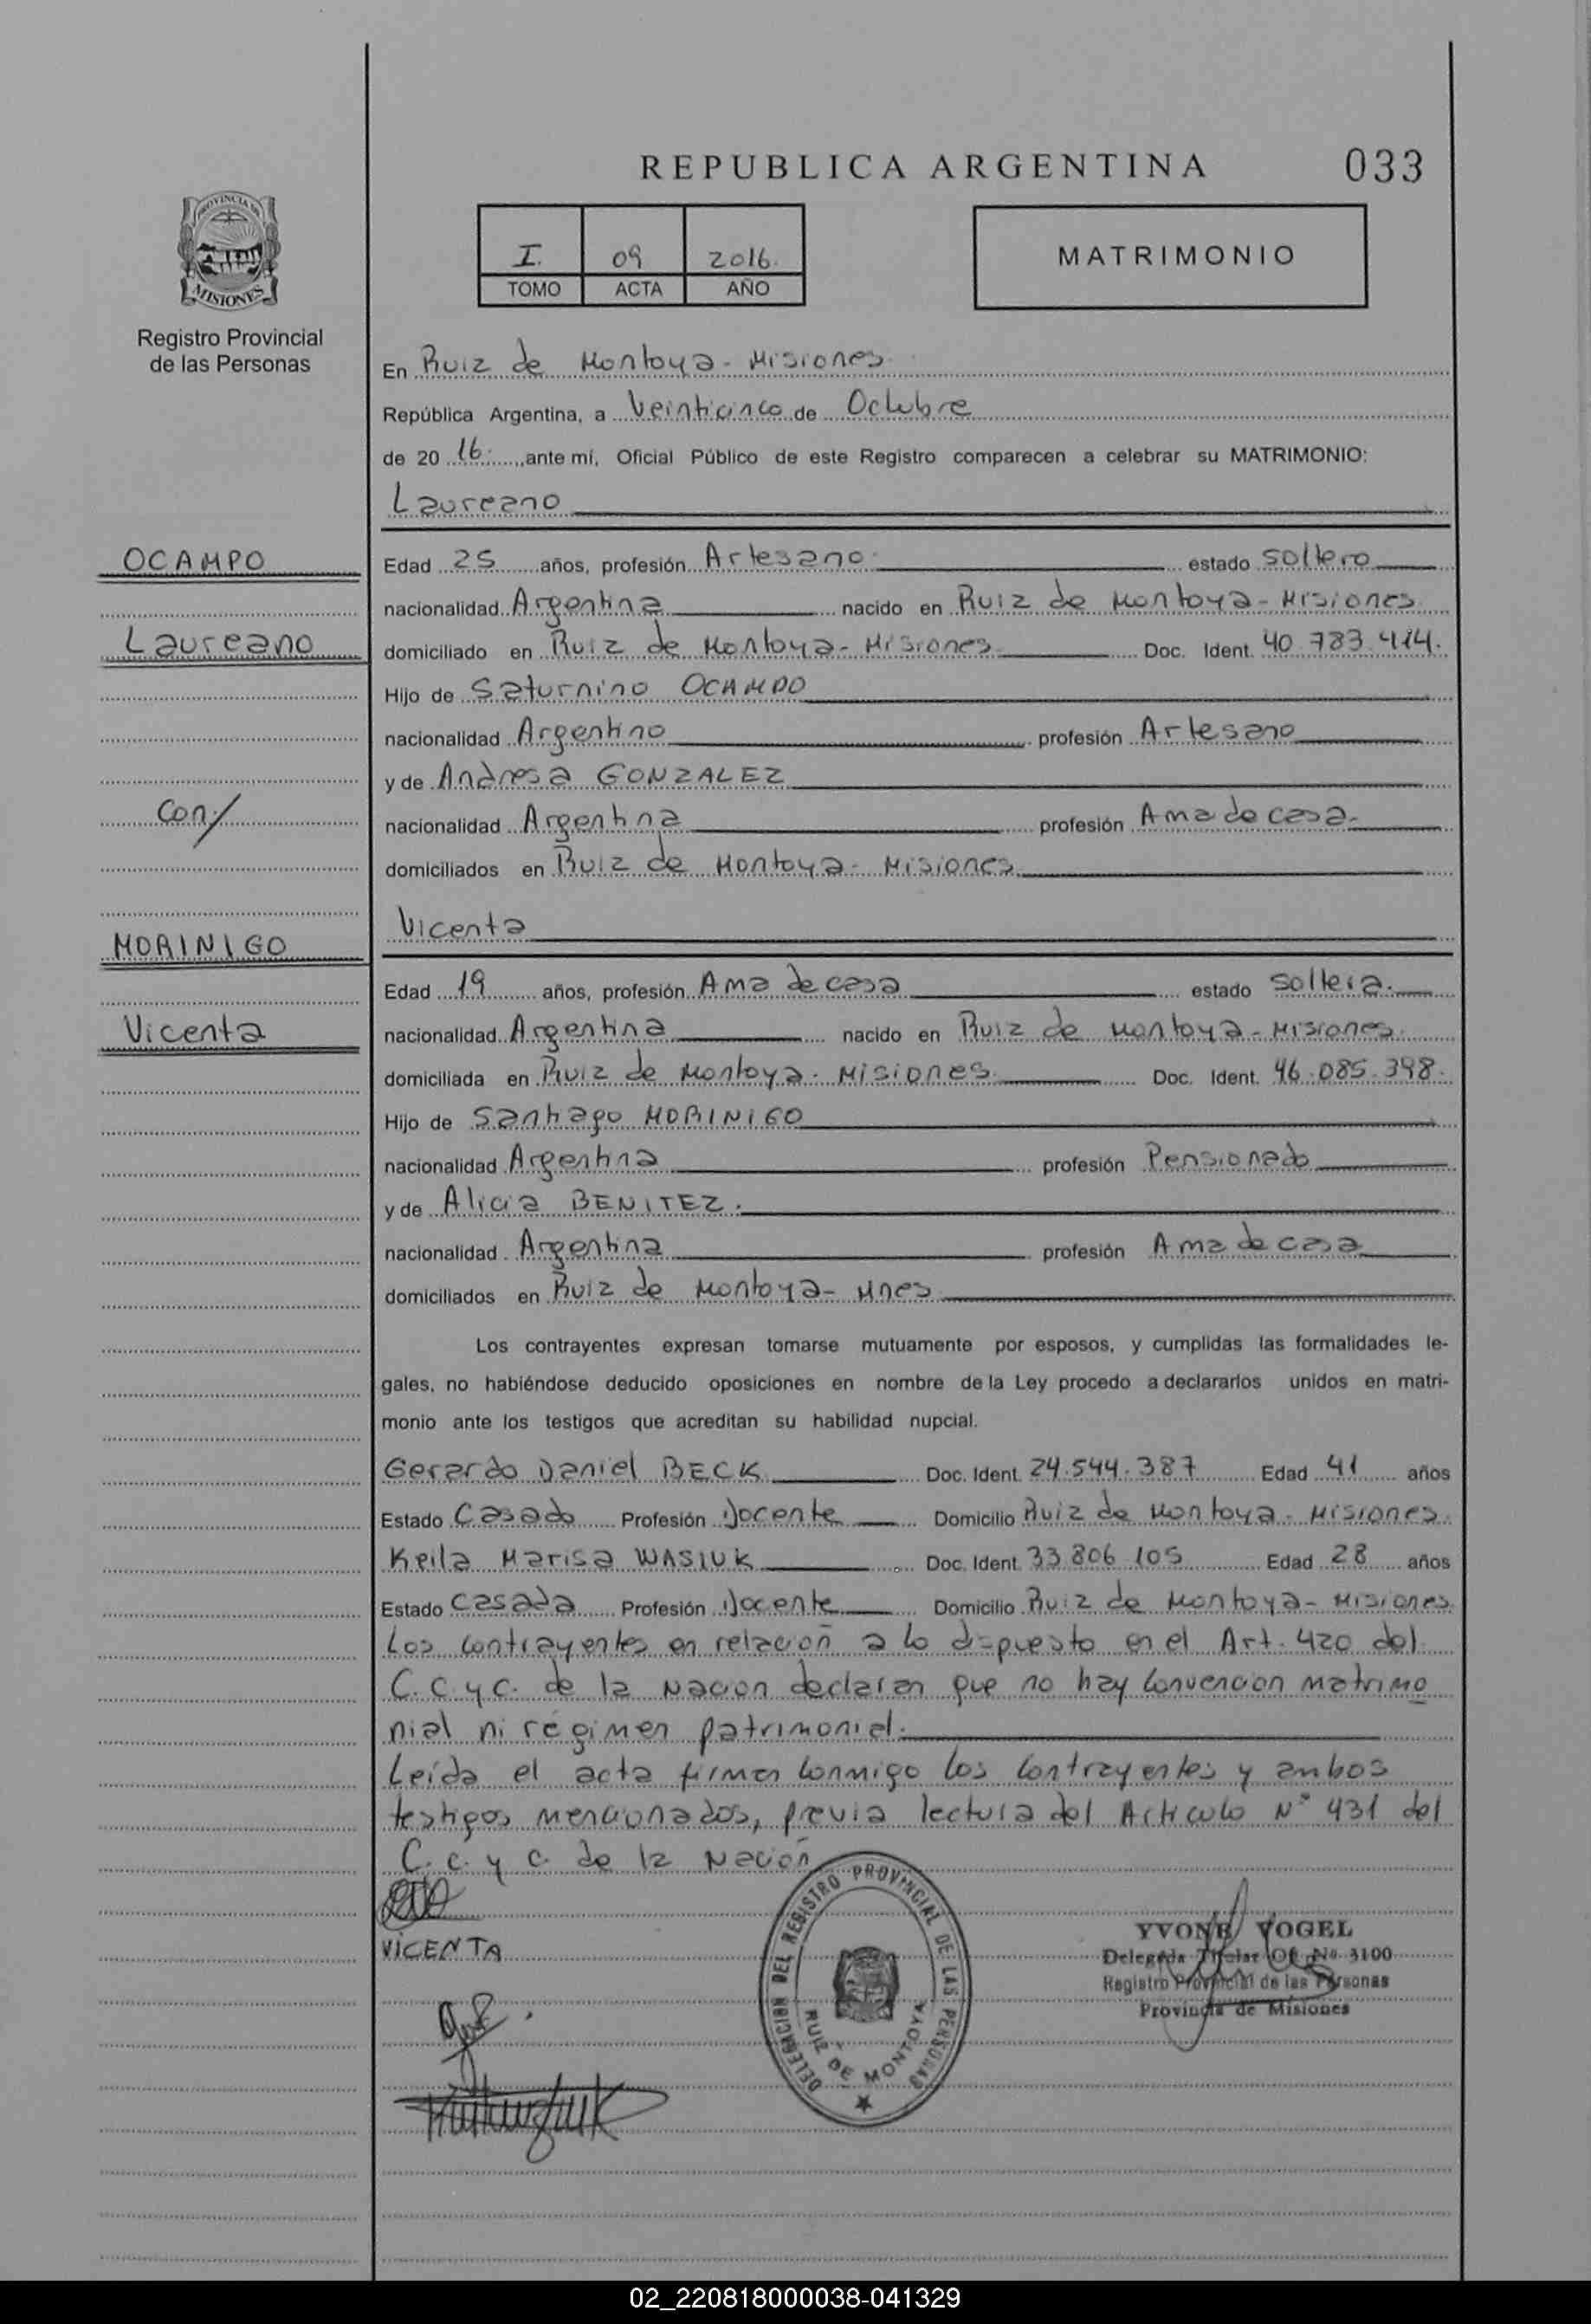 REPUBLICA ARGENTINA 033
PROVINCIA DE
MISIONES
Registro Provincial
de las Personas
I. 09 2016.
TOMO ACTA AÑO
MATRIMONIO
En Ruiz de Montoya - Misiones.
República Argentina, a Veinticinco de Octubre
de 20 16. ,ante mí, Oficial Público de este Registro comparecen a celebrar su MATRIMONIO:
Laureano
OCAMPO
Edad 25 años, profesión Artesano. estado soltero
nacionalidad Argentina nacido en Ruiz de Montoya - Misiones
Laureano
domiciliado en Ruiz de Montoya - Misiones Doc. Ident. 40.783.414.
Hijo de Saturnino OCAMPO
nacionalidad Argentino profesión Artesano
y de Andresa GONZALEZ
con/
nacionalidad Argentina profesión Ama de casa.
domiciliados en Ruiz de Montoya - Misiones
Vicenta
MORINIGO
Edad 19 años, profesión Ama de casa estado soltera.
Vicenta
nacionalidad Argentina nacido en Ruiz de Montoya - Misiones.
domiciliada en Ruiz de Montoya - Misiones Doc. Ident. 46.085.398.
Hijo de Santiago MORINIGO
nacionalidad Argentina profesión Pensionado
y de Alicia BENITEZ.
nacionalidad Argentina profesión Ama de casa
domiciliados en Ruiz de Montoya - Mnes
Los contrayentes expresan tomarse mutuamente por esposos, y cumplidas las formalidades le-
gales, no habiéndose deducido oposiciones en nombre de la Ley procedo a declararlos unidos en matri-
monio ante los testigos que acreditan su habilidad nupcial.
Gerardo Daniel BECK Doc. Ident. 24.544.387 Edad 41 años
Estado Casado Profesión Docente Domicilio Ruiz de Montoya - Misiones.
Keila Marisa WASIUK Doc. Ident. 33 806 105 Edad 28 años
Estado Casada Profesión Docente Domicilio Ruiz de Montoya - Misiones
Los contrayentes en relación a lo dispuesto en el Art. 420 del
C. C y C. de la Nacion declaran que no hay convencion matrimo
nial ni régimen patrimonial.
Leída el acta firman conmigo los contrayentes y ambos
testigos mencionados, previa lectura del Articulo N° 431 del
C. C. y C. de la Nación
VICENTA
DELEGACION DEL REGISTRO PROVINCIAL DE LAS PERSONAS
RUIZ DE MONTOYA
YVONE VOGEL
Delegada Titular Of. Nº 3100
Registro Provincial de las Personas
Provincia de Misiones
02_220818000038-041329